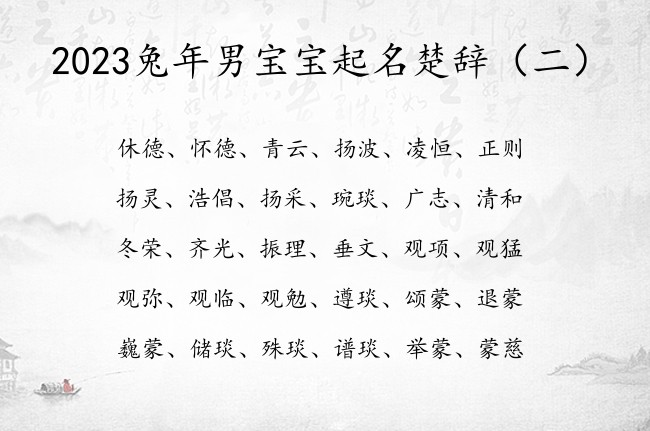 2023兔年男宝宝起名楚辞（二）
休德、怀德、青云、扬波、凌恒、正则
扬灵、浩倡、扬采、琬琰、广志、清和
冬荣、齐光、振理、垂文、观项、观猛
观弥、观临、观勉、遵琰、颂蒙、退蒙
巍蒙、储琰、殊琰、谱琰、举蒙、蒙慈